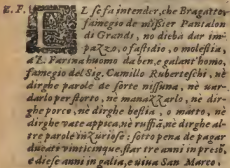 Z. F.
EL se fa intender, che Bragatto,
famegio de missier Pantalon
di Grandi, no dieba dar im-
pazzo, o fastidio, o molestia,
a'Z. Farina huomo da ben, e galant'homo,
famegio del Sig. Camillo Ruberteschi, nè
dirghe parole de sorte nissuna, nè uar-
darlo per storto, nè manazzarlo, nè dir-
ghe porco, nè dirghe bestia, o matto, nè
dirghe vate appica, nè ruffiã, nè dirghe al-
tre parole inzuriose; sotto pena de pagar
ducati vinticinque, star tre anni in presõ,
e diese anni in galia, e uiua San Marco.